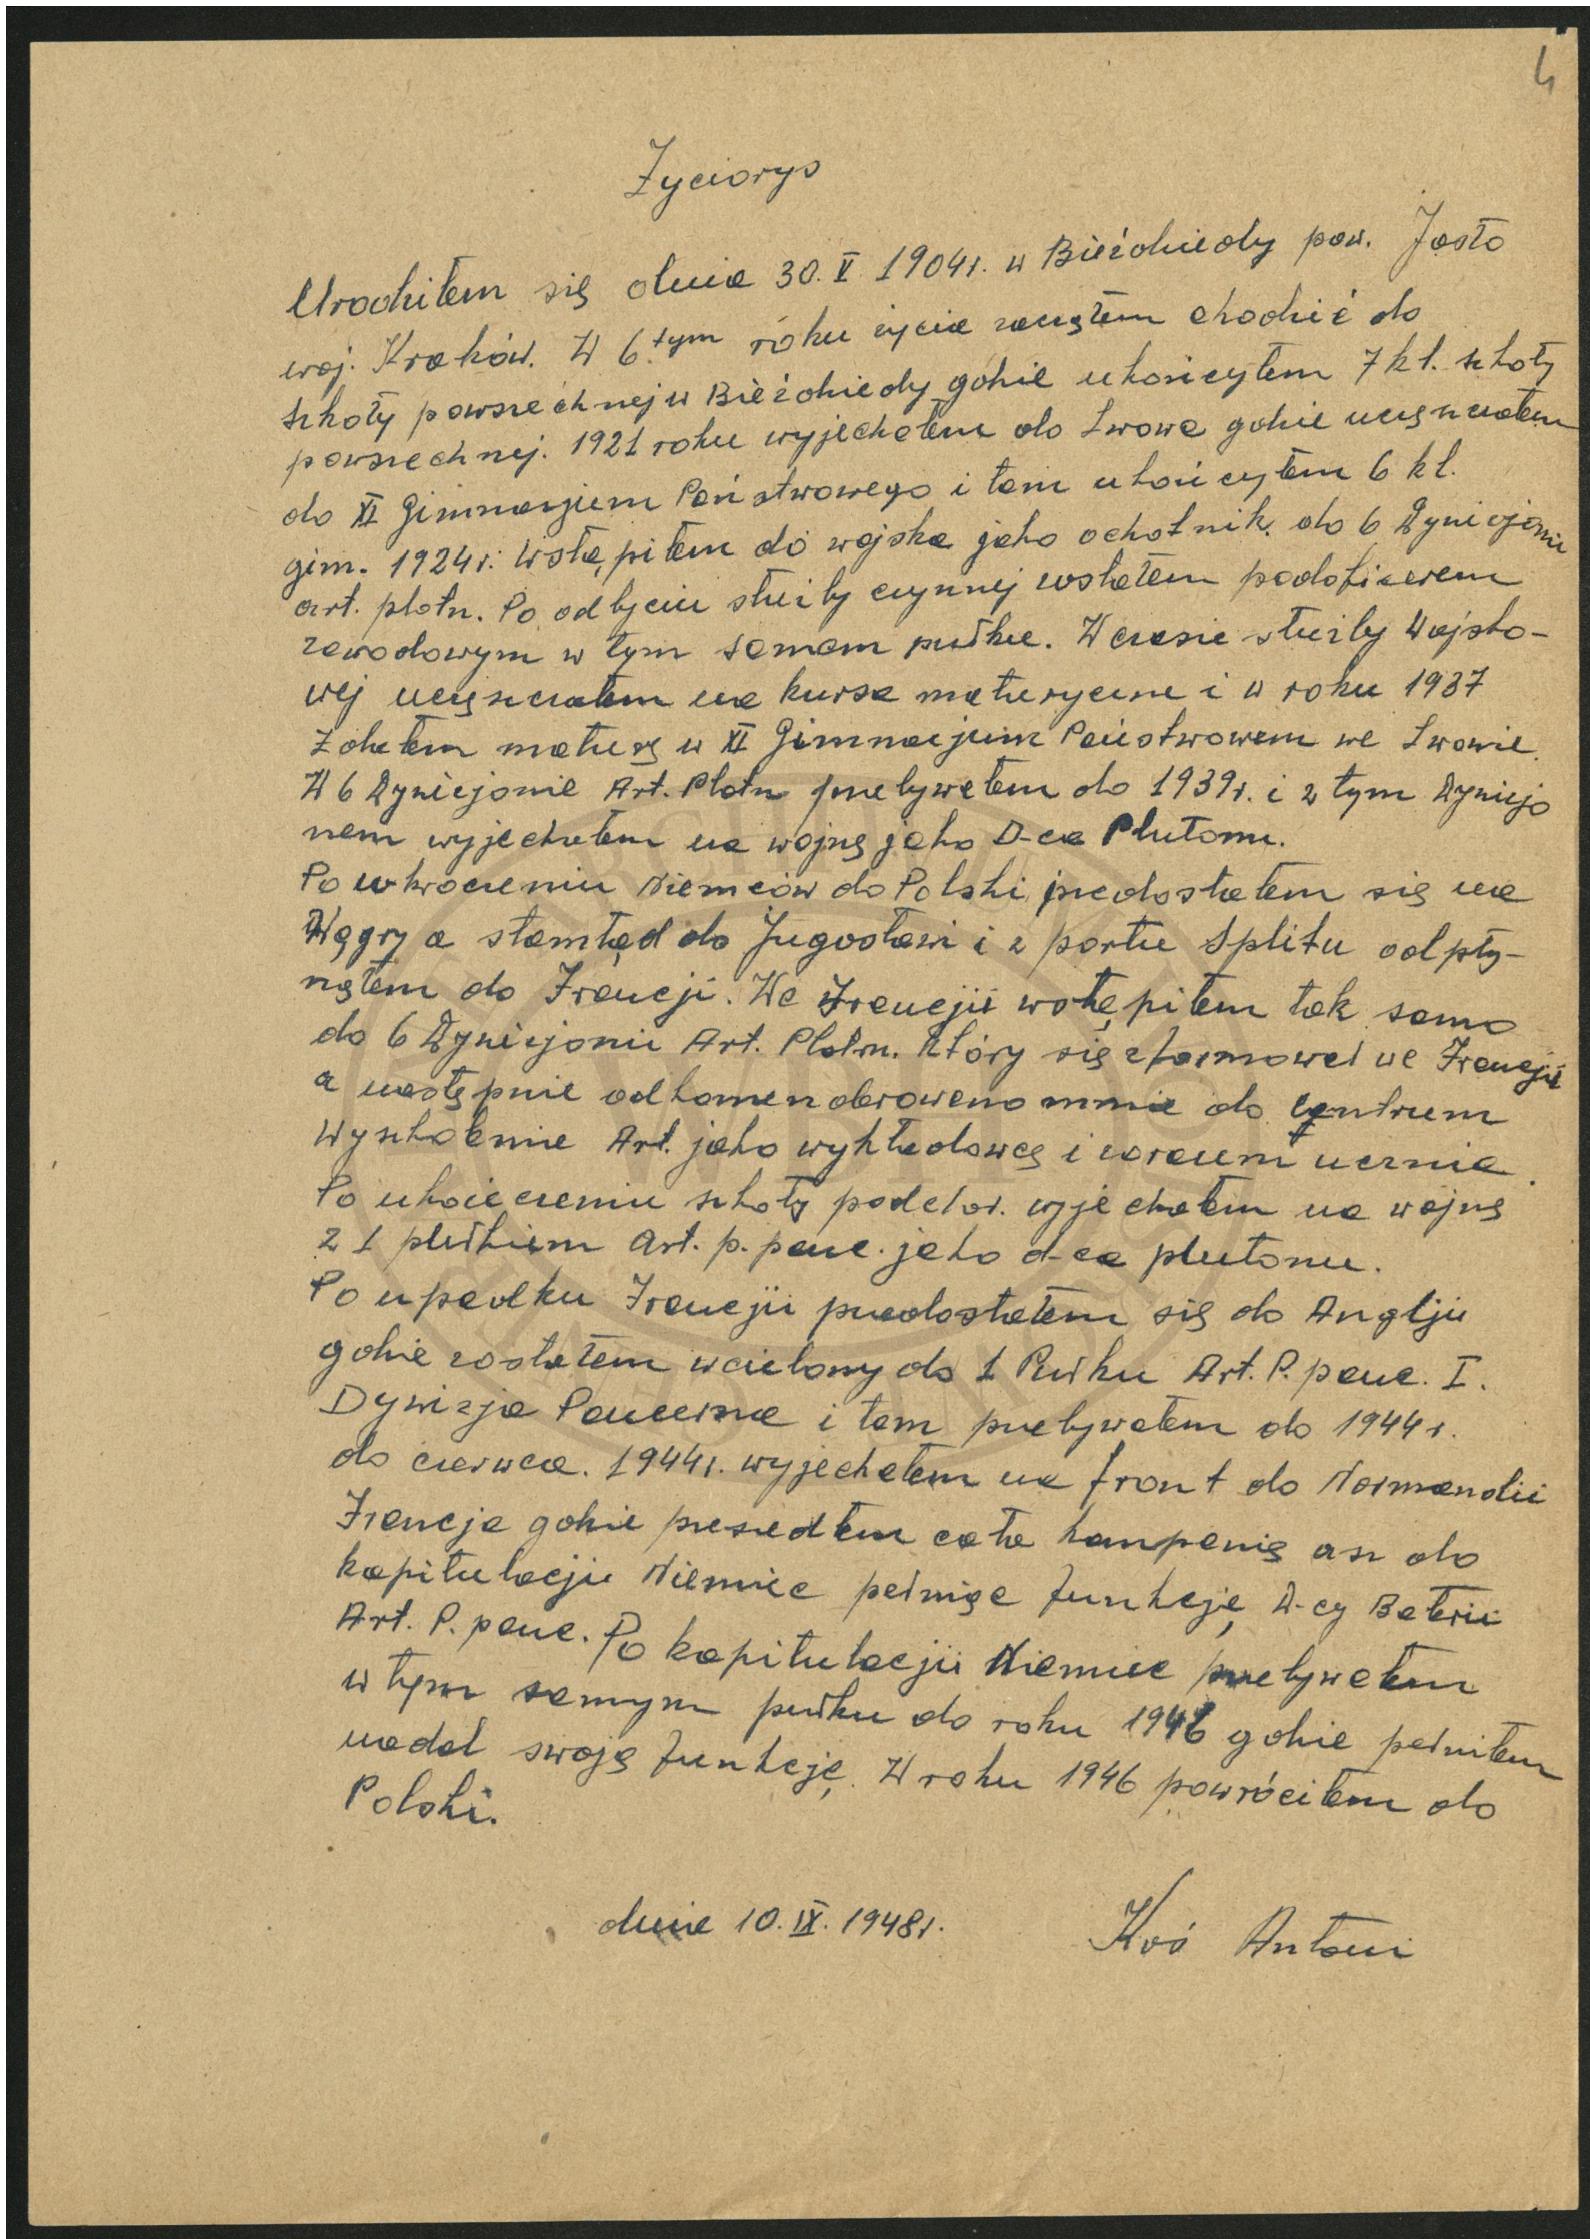 4
Życiorys
Urodziłem się dnia 30. V 1904r. w Bieździedy pow. Jasło
woj. Kraków. W 6tym roku życia zacząłem chodzić do
szkoły powszechnej w Bieździedy gdzie ukończyłem 7 kl. szkoły
powszechnej. 1921 roku wyjechałem do Lwowa gdzie uczęszczałem
do XI Gimnazjum Państwowego i tam ukończyłem 6 kl.
gim. 1924r. wstąpiłem do wojska jako ochotnik do 6 Dywizjonu
art. plotn. Po odbyciu służby czynnej zostałem podoficerem
zawodowym w tym samem pułku. W czasie służby Wojsko-
wej uczęszczałem na kursa maturyczne i w roku 1937
zdałem maturę w XI Gimnazjum Państwowem we Lwowie.
W 6 Dywizjonie Art. Plotn przebywałem do 1939r. i z tym Dywizjo
nem wyjechałem na wojnę jako D-ca Plutonu.
Po wkroczeniu Niemców do Polski przedostałem się na
Węgry a stamtąd do Jugosławi i z portu Splitu odpły-
nąłem do Francji. We Francjii wstąpiłem tak samo
do 6 Dywizjonu Art. Plotn. który się zformował we Francjii
a następnie odkomenderowano mnie do Centrum
Wyszkolenie Art. jako wykładowcę i zarazem ucznia.
Po ukończeniu szkoły podchor. wyjechałem na wojnę
z 1 pułkiem art. p. panc. jako d-ca plutonu.
Po upadku Francjii przedostałem się do Angljii
gdzie zostałem wcielony do 1 Pułku Art. P. panc. I.
Dywizja Pancerna i tam przebywałem do 1944 r.
do czerwca. 1944r. wyjechałem na front do Normandii
Francja gdzie przeszedłem cała kampanię asz do
kapitulacjii Niemiec pełniąc funkcję D-cy Baterii
Art. P. panc. Po kapitulacjii Niemiec przebywałem
w tym samym pułku do roku 1946 gdzie pełniłem
nadal swoję funkcję. W roku 1946 powróciłem do
Polski.
dnia 10. IX. 1948r. Koś Antoni